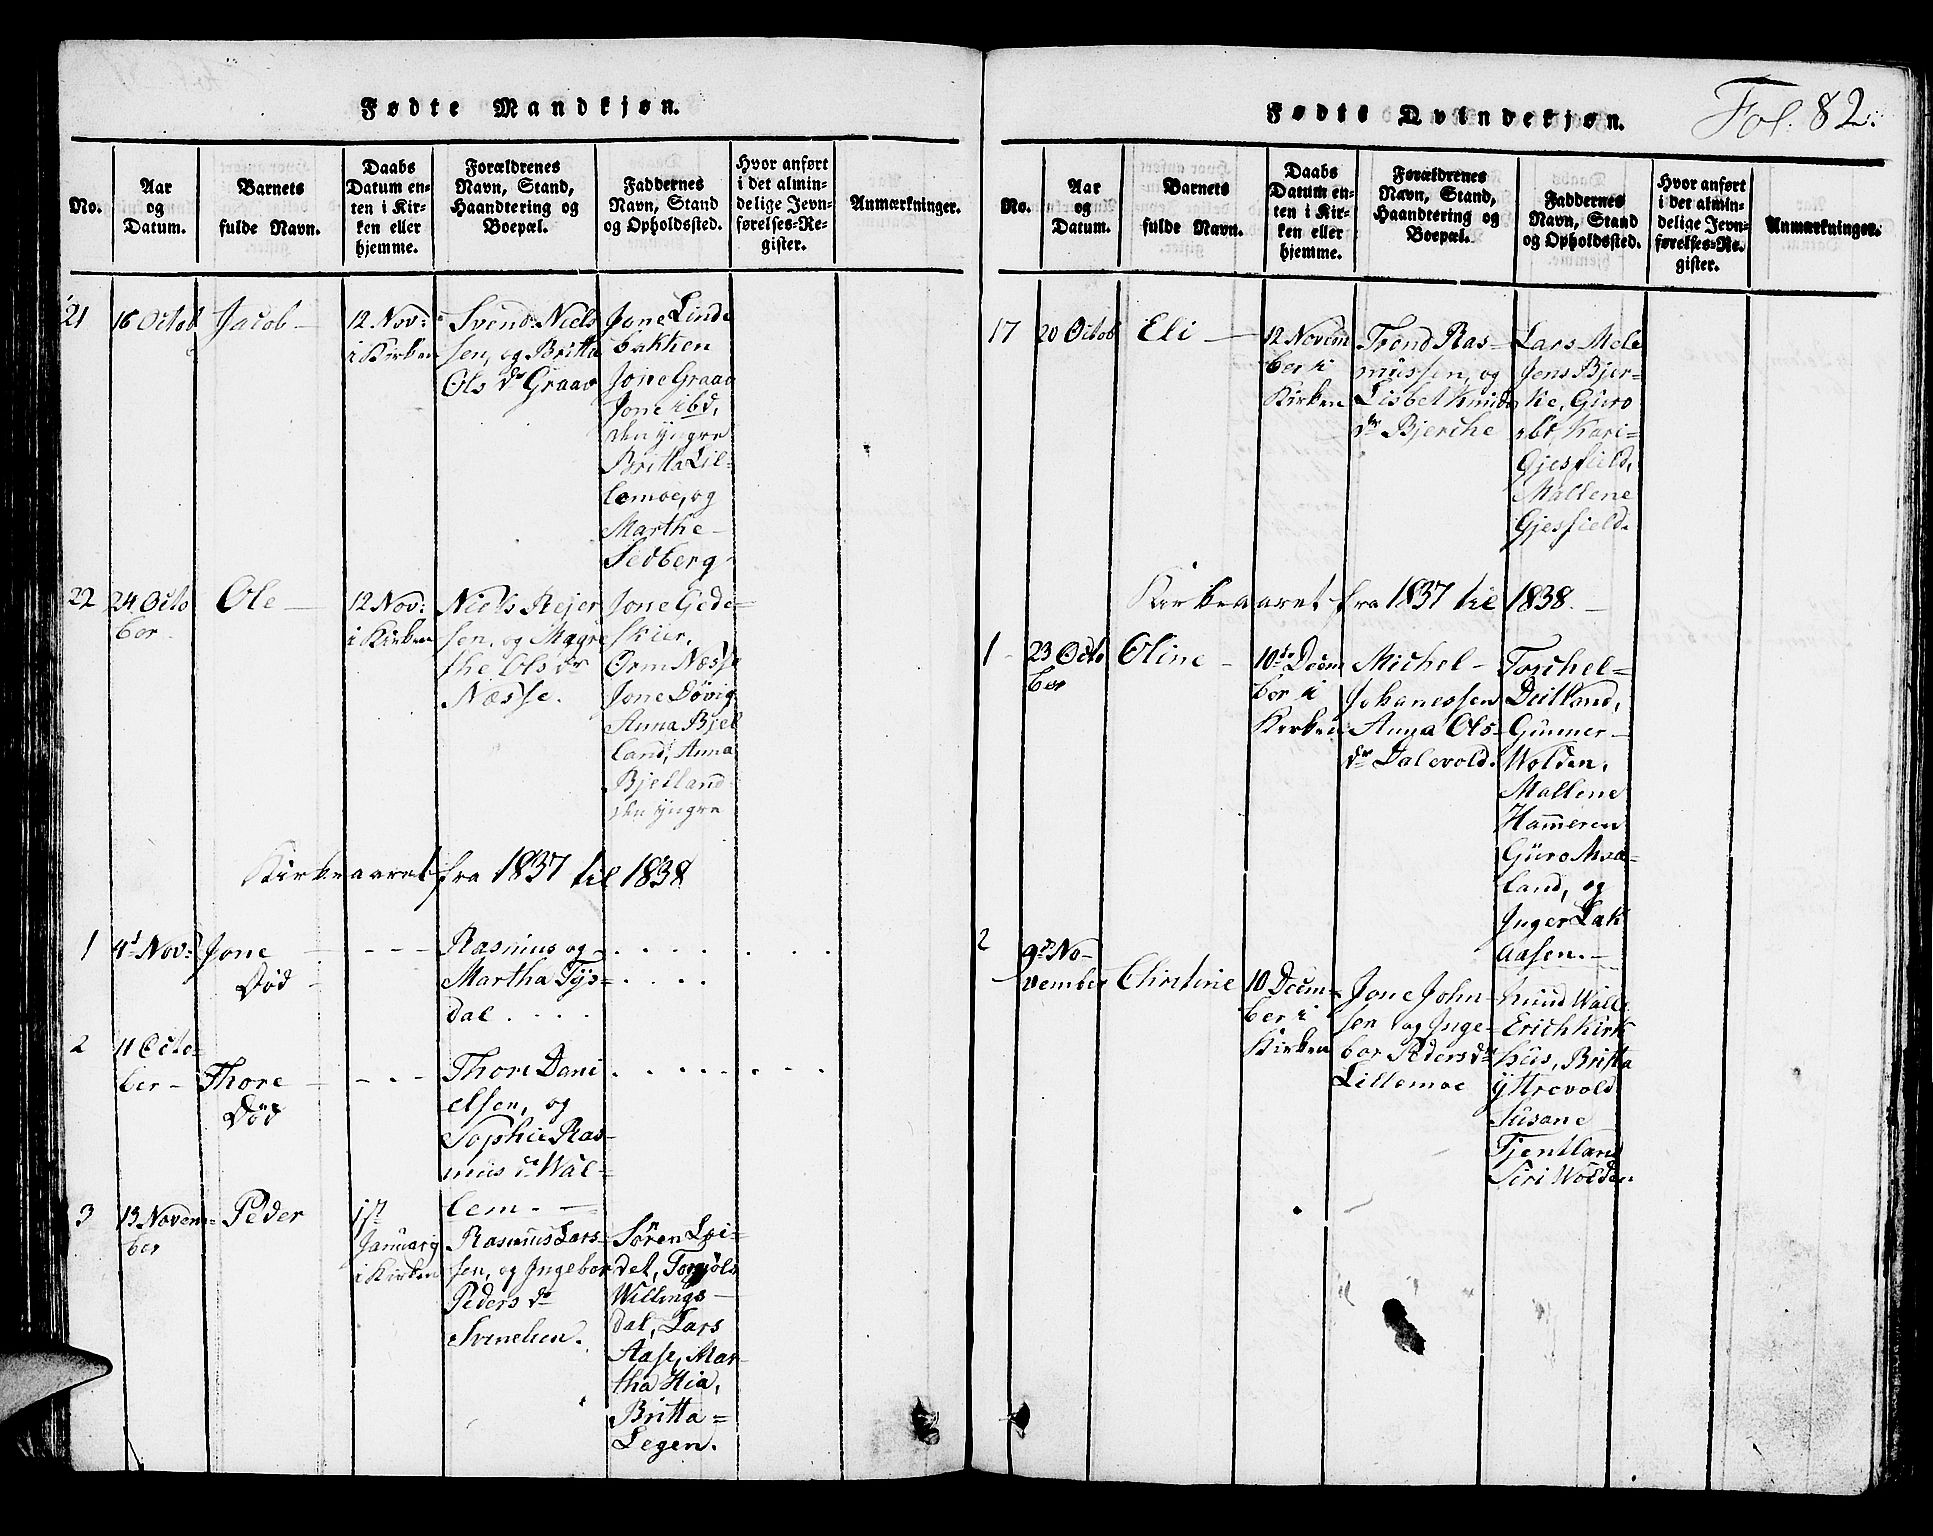 Fødte Mandkjøn.
No.
Aar
og
Datum.
Barnets
fulde Navn.
Daabs
Datum en-
ten i Kir-
ken eller
hjemme.
Forældrenes
Navn, Stand,
Haandtering og
Boepæl.
Faddernes
Navn, Stand
og Opholdssted.
Hvor anført
i det almin-
delige Jevn-
førelses-Re-
gister.
Anmærkninger.
21
16 Octob
Jacob -
12 Nov:
i Kirken
Svend Niels
sen, og Britta
Ols dr Graav
Jone Linde
bakken
Jone Graav
Jone ibd,
den yngre
Britta Lil-
lemoe, og
Marthe
Sedberg
22
24 Octo
ber
Ole -
12 Nov:
i Kirken
Niels Rejer
sen, og Magre
the Ols dr
Næsse.
Jone Gede-
skier,
Orm Næsse
Jone Døvig
Anna Bjel
land, Anna
Bjelland
den yngre
Kirkeaaret fra 1837 til 1838
1
4d Nov:
Jone
Død -
- - -
Rasmus og
Martha Tys-
dal . . . .
2
11 Octo-
ber -
Thore
Død
- - -
Thore Dani
elsen, og
Sophie Ras-
mus dr Wal-
lem. -
3
13 Novem-
ber
Peder
1st
Januarij
i Kirken
Rasmus Lars-
sen, og Ingebor
Peders dr
Svinelien.
Søren Lei-
det, Torjøls
Willings-
dal, Lars
Aase, Mar-
tha Hia,
Britta =
Legen.
Fødte Qvindekjøn.
Fol. 82.
No.
Aar
og
Datum.
Barnets
fulde Navn.
Daabs
Datum en-
ten i Kir-
ken eller
hjemme.
Forældrenes
Navn, Stand,
Haandtering og
Boepæl.
Faddernes
Navn, Stand
og Opholdssted.
Hvor anført
i det almin-
delige Jevn-
førelses-Re-
gister.
Anmærkninger.
17
20 Octob
Eli -
12 Novem
ber i
Kirken
Trond Ras-
mussen, og
Lisbet Knuds
dr Bjerche
Lars Mele
Jens Bjer-
ke, Guro
ibd, Kari=
Gjesfield,
Mallene
Gjesfield.
Kirkeaaret fra 1837 til 1838. -
1
23 Octo
ber
Oline -
10de Decm
ber i
Kirken
Michel -
Johanessen
Anna Ols-
dr Dalevold.
Torchel=
Deitland,
Gunner-
Wolden,
Mallene
Hameren
Guro Mæ-
land, og
Inger Lak
aasen. -
2
9de No-
vember
Christine
10 Decm-
ber i
Kirken
Jone John-
sen og Inge-
bor Peders dr
Lillemoe
Knud Walle
Erich Kirk
hus, Britta
Yttrevold
Susane
Tjentland
Siri Wolden